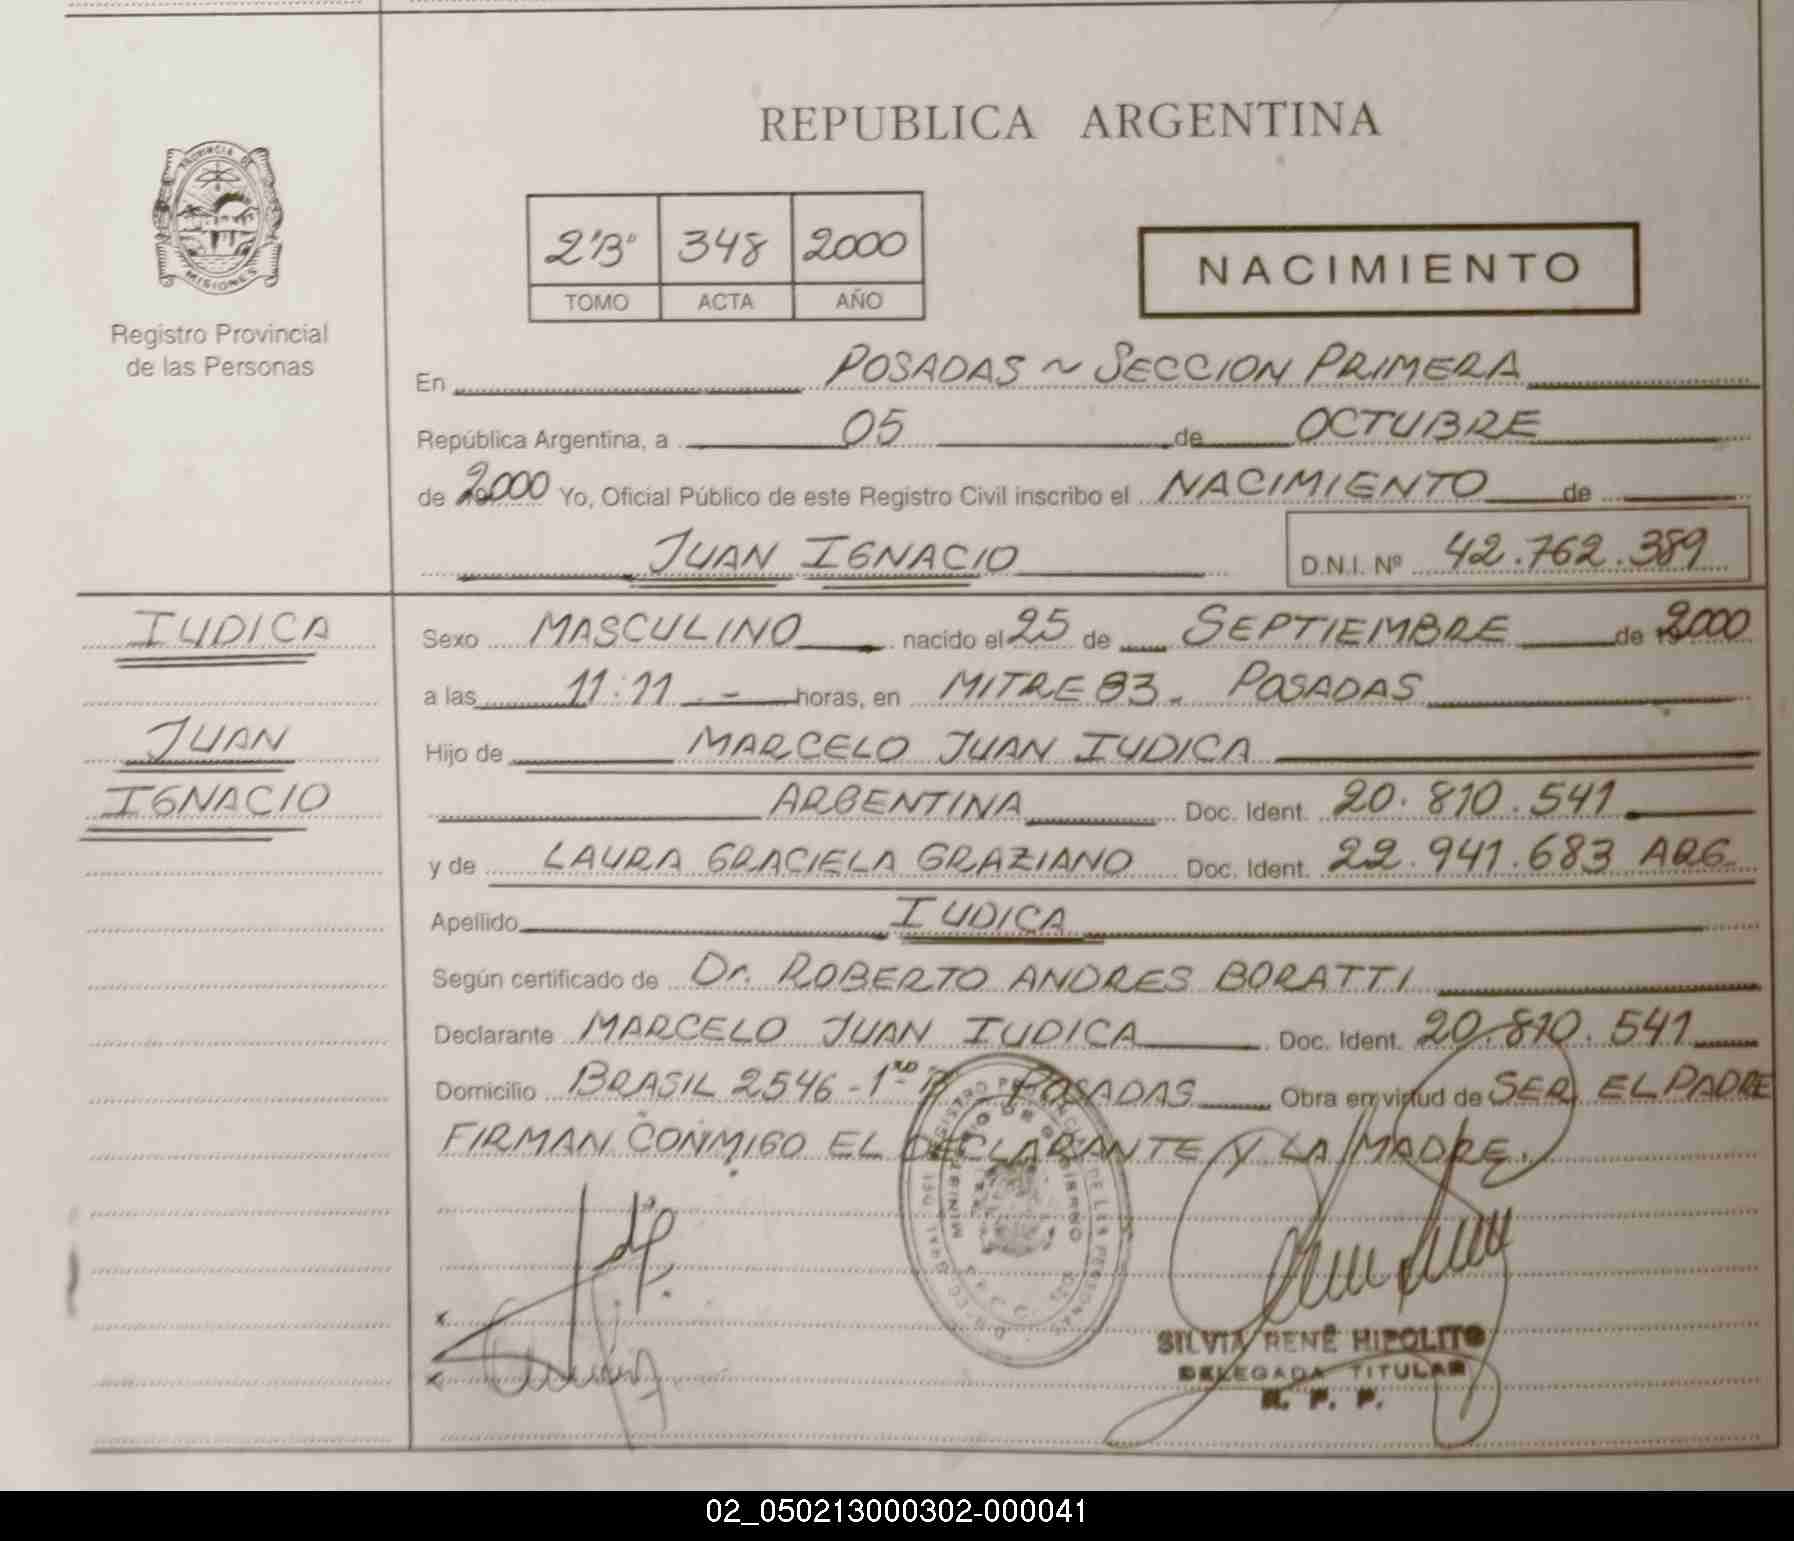 REPUBLICA ARGENTINA
PROVINCIA DE
MISIONES
Registro Provincial
de las Personas
2"B" 348 2000
TOMO ACTA AÑO
NACIMIENTO
En POSADAS ~ SECCION PRIMERA
República Argentina, a 05 de OCTUBRE
de 2000 Yo, Oficial Público de este Registro Civil inscribo el NACIMIENTO de
JUAN IGNACIO D.N.I. Nº 42.762.389
IUDICA
JUAN
IGNACIO
Sexo MASCULINO nacido el 25 de SEPTIEMBRE de 2000
a las 11:11.- horas, en MITRE 83- POSADAS
Hijo de MARCELO JUAN IUDICA
ARGENTINA Doc. Ident. 20.810.541
y de LAURA GRACIELA GRAZIANO Doc. Ident. 22.941.683 ARG.
Apellido IUDICA
Según certificado de Dr. ROBERTO ANDRES BORATTI
Declarante MARCELO JUAN IUDICA Doc. Ident. 20.810.541
Domicilio BRASIL 2546-1ro POSADAS Obra en virtud de SER EL PADRE
FIRMAN CONMIGO EL DECLARANTE Y LA MADRE.
MINISTERIO DE GOBIERNO
SILVIA RENÉ HIPOLITO
DELEGADA TITULAR
R. P. P.
02_050213000302-000041